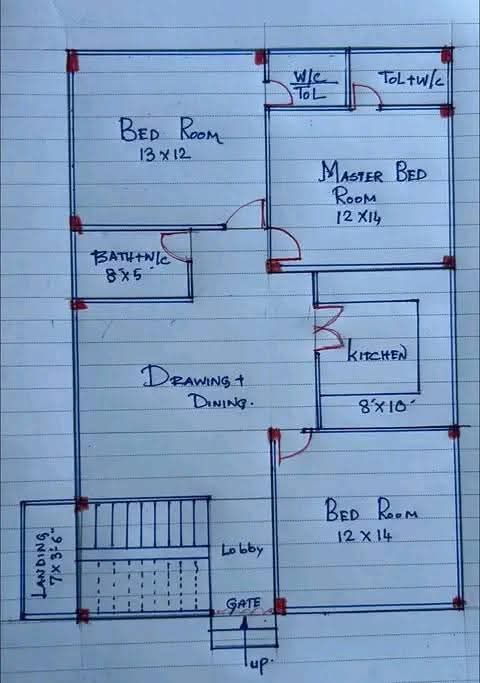 W/C
TOL
TOL+W/C
BED ROOM
13 X 12
MASTER BED
ROOM
12 X 14
BATH+W/C
8'X5'
KITCHEN
8'X10'
DRAWING +
DINING.
BED ROOM
12 X 14
LANDING
7 X 3'-6"
Lobby
GATE
up.